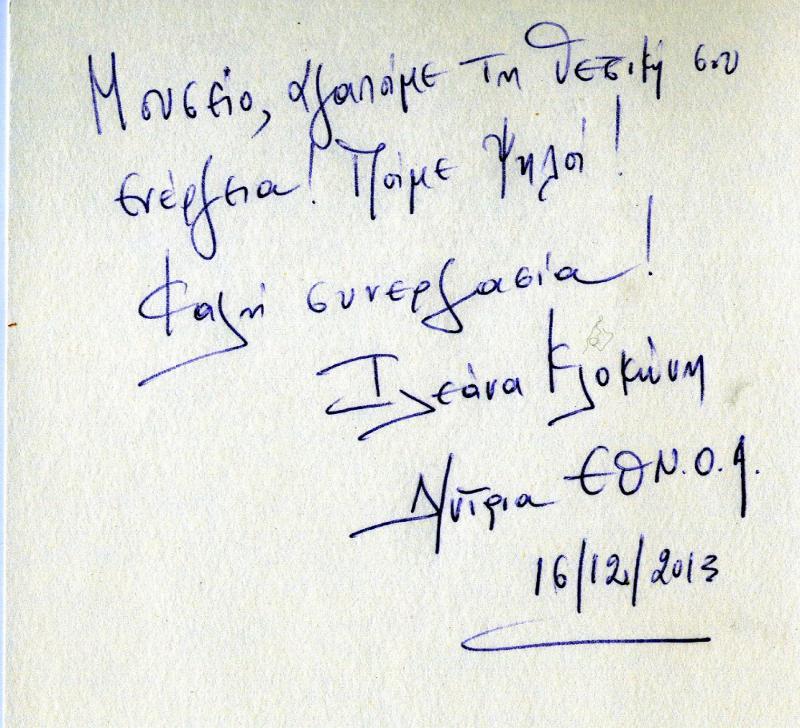 Μουσείο, αγαπάμε τη θετική σου
ενέργεια! Πάμε ψηλά!
Καλή συνεργασία!
Ιλεάνα Κλοκώνη
Δ/ντρια ΕΘΝ.Ο.Α.
16/12/2013